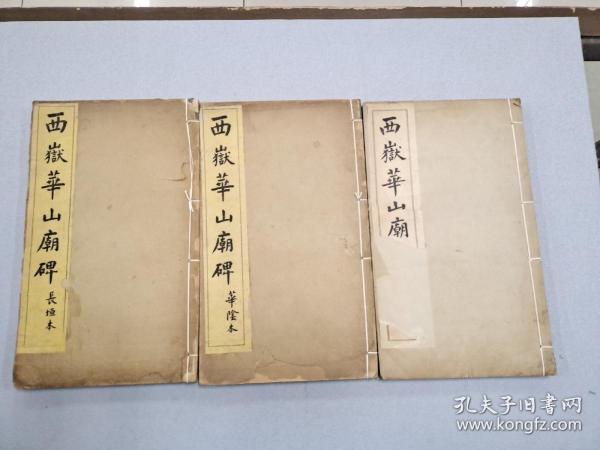 西嶽華山廟碑
長垣本
西嶽華山廟碑
華陰本
西嶽華山廟
孔夫子旧书网
www.kongfz.com